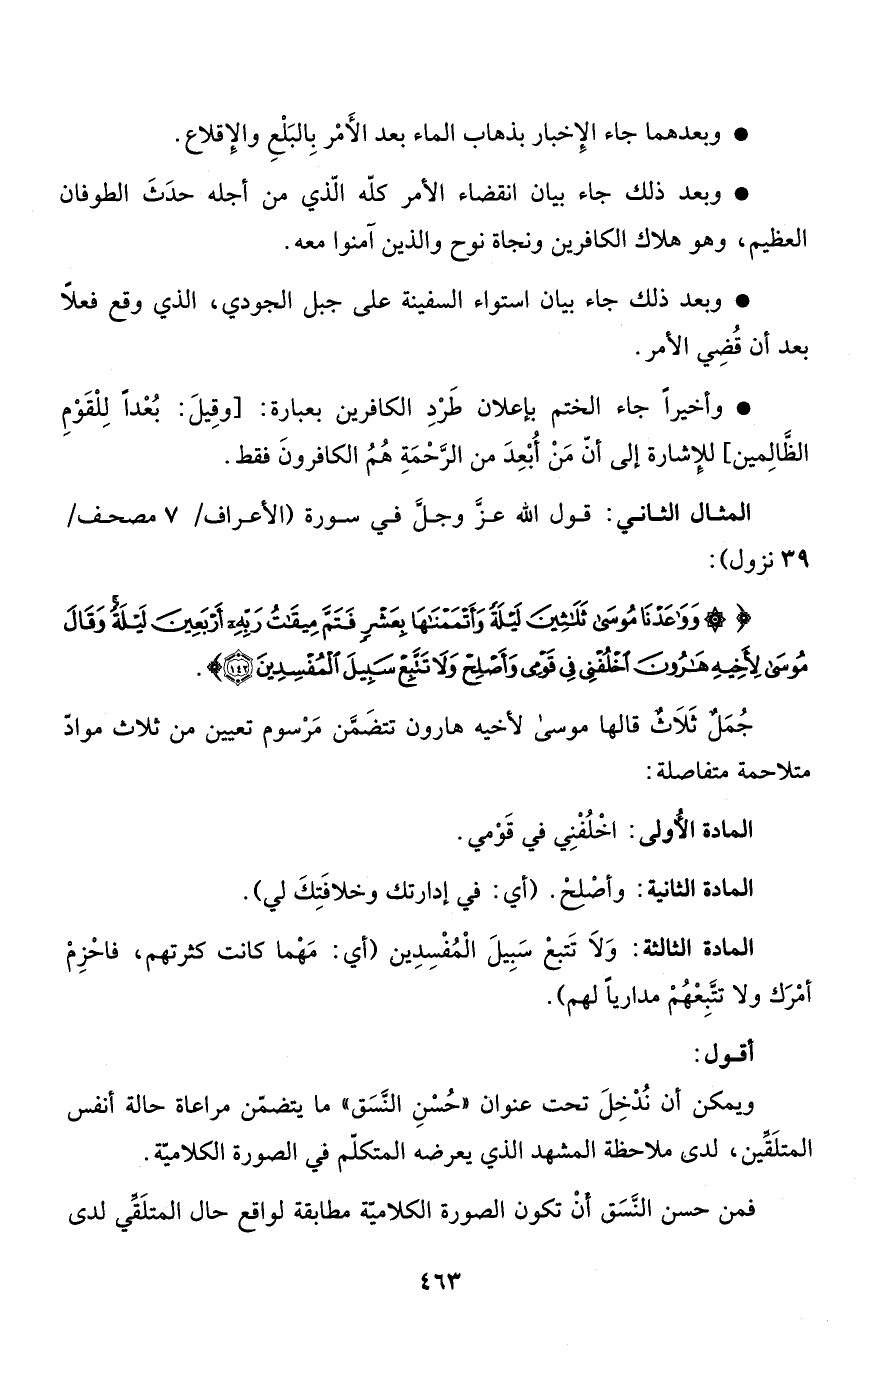 ● وبعدهما جاء الإِخبار بذهاب الماء بعد الأَمْر بِالبَلْعِ والإِقلاع.
● وبعد ذلك جاء بيان انقضاء الأمر كلّه الّذي من أجله حدَثَ الطوفان
العظيم، وهو هلاك الكافرين ونجاة نوح والذين آمنوا معه.
● وبعد ذلك جاء بيان استواء السفينة على جبل الجودي، الذي وقع فعلاً
بعد أن قُضِي الأمر.
● وأخيراً جاء الختم بإعلان طَرْدِ الكافرين بعبارة: [وقِيلَ: بُعْداً لِلْقَوْمِ
الظَّالِمين] للإِشارة إلى أنّ مَنْ أُبْعِدَ من الرَّحْمَةِ هُمُ الكافرونَ فقط.
المثـال الثـانـي: قـول الله عـزَّ وجـلَّ فـي سـورة (الأعـراف/ ٧ مصحـف/
٣٩ نزول):
﴿ ۞ وَوَٰعَدْنَا مُوسَىٰ ثَلَٰثِينَ لَيْلَةً وَأَتْمَمْنَٰهَا بِعَشْرٍ فَتَمَّ مِيقَٰتُ رَبِّهِۦٓ أَرْبَعِينَ لَيْلَةً ۚ وَقَالَ
مُوسَىٰ لِأَخِيهِ هَٰرُونَ ٱخْلُفْنِى فِى قَوْمِى وَأَصْلِحْ وَلَا تَتَّبِعْ سَبِيلَ ٱلْمُفْسِدِينَ ١٤٢﴾.
جُمَلٌ ثَلَاثٌ قالها موسىٰ لأخيه هارون تتضَمَّن مَرْسوم تعيين من ثلاث موادّ
متلاحمة متفاصلة:
المادة الأُولى: اخْلُفْنِي في قَوْمي.
المادة الثانية: وأصْلِحْ. (أي: في إدارتك وخلافَتِكَ لي).
المادة الثالثة: وَلَا تَتبِعْ سَبِيلَ الْمُفْسِدِين (أي: مَهْما كانت كثرتهم، فاحْزِمْ
أمْرَك ولا تتَّبِعْهُمْ مدارياً لهم).
أقـول:
ويمكن أن نُدْخِلَ تحت عنوان «حُسْنِ النَّسَق» ما يتضمّن مراعاة حالة أنفس
المتلَقِّين، لدى ملاحظة المشهد الذي يعرضه المتكلّم في الصورة الكلاميّة.
فمن حسن النَّسَق أنْ تكون الصورة الكلاميّة مطابقة لواقع حال المتلَقِّي لدى
٤٦٣